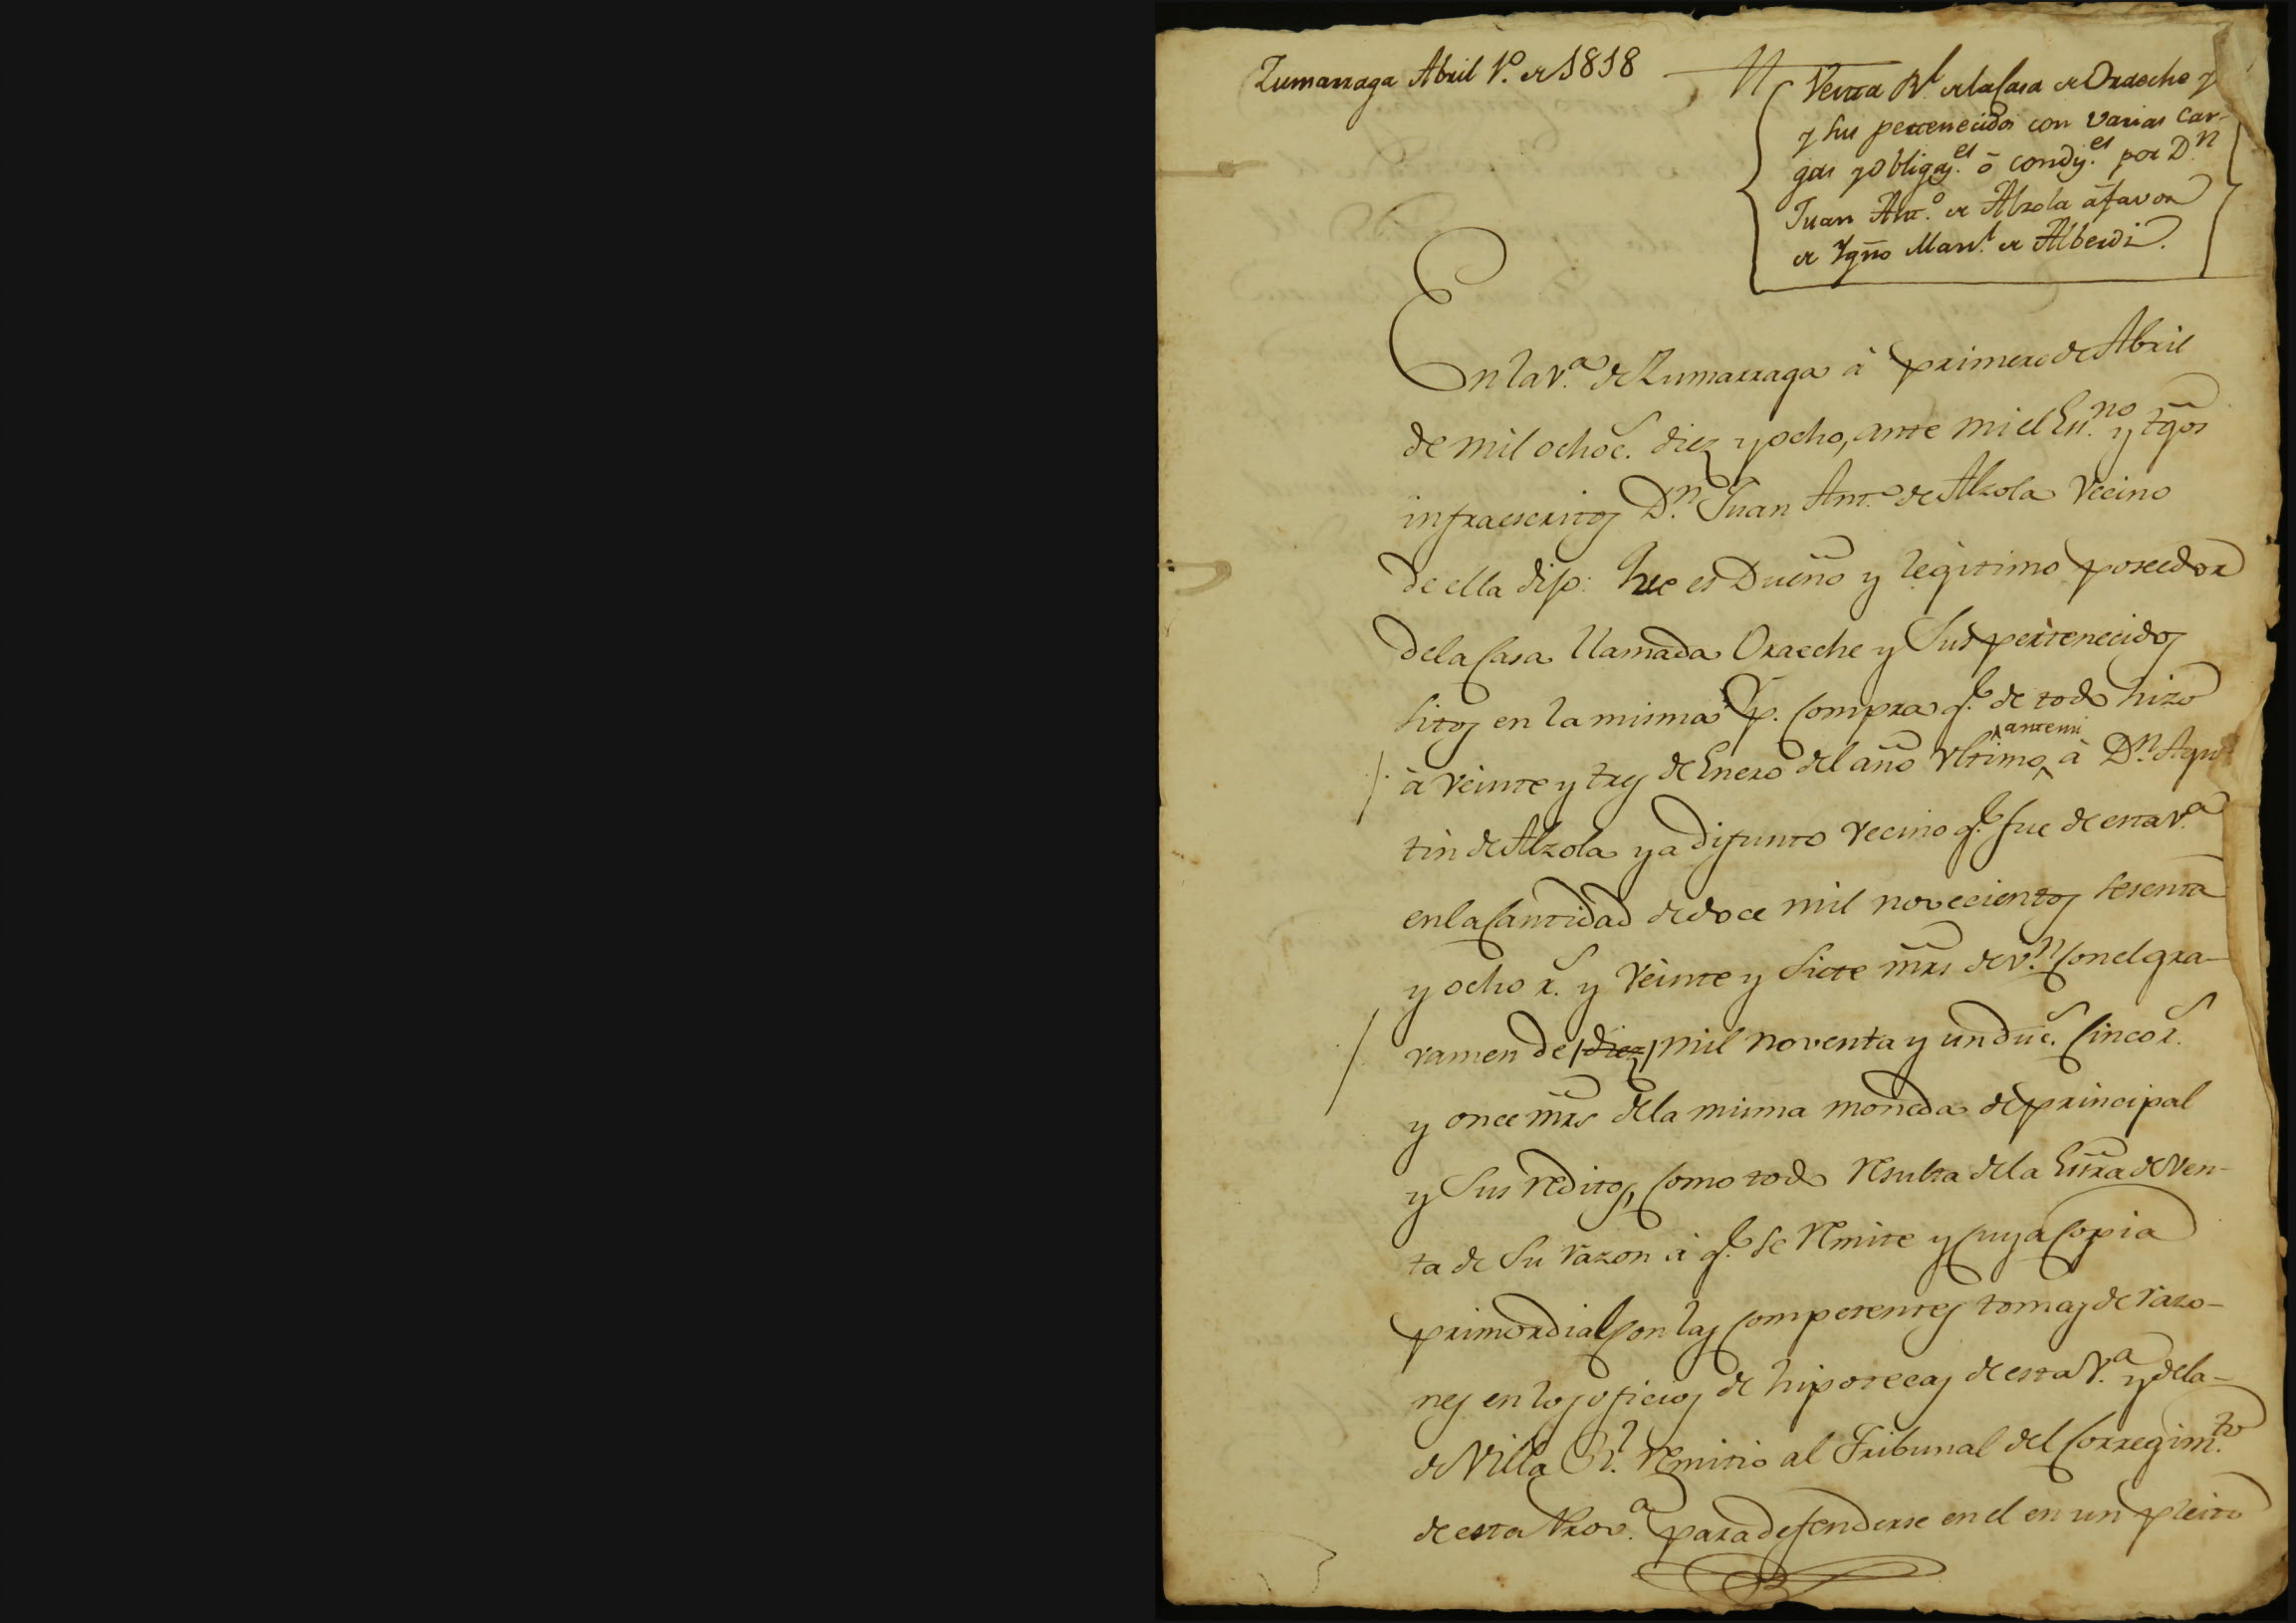 Zumarraga Abril 1.º de 1818
Venta R.l de la Casa de Oraeche y
y sus pertenecidos con varias Car-
gas y obligaz.es ó condiz.es por D.n
Juan Ant.o de Alzola á favor
de Ygño Man.l de Alberdi.
En la v.a de Zumarraga à primero de Abril
de mil ochoc.s diez y ocho, ante mi el Esc.no y tgõs
infraescritos D.n Juan Ant.o de Alzola Vecino
de ella dijo: Que es Dueño y legitimo poseedor
de la Casa llamada Oraeche y sus pertenecidos
sitos en la misma p.r compra q.e de todo hizo
à veinte y tres de Enero del año ultimo ante mi à D.n Agus
tin de Alzola ya difunto vecino q.e fue de esta v.a
en la Cantidad de doce mil novecientos sesenta
y ocho r.s y veinte y siete mrs de v.n con el gra-
vamen de (diez) mil noventa y un duc.s cinco r.s
y once mrs de la misma moneda de principal
y sus reditos, como todo resulta de la Essra de ven-
ta de su razon à q.e se remite y cuya copia
primordial con las competentes tomas de razo-
nes en los oficios de hipotecas de esta V.a y de la
de Villa R.l remitio al Tribunal del Corregim.to
de esta Prov.a para defenderse en el en un pleito